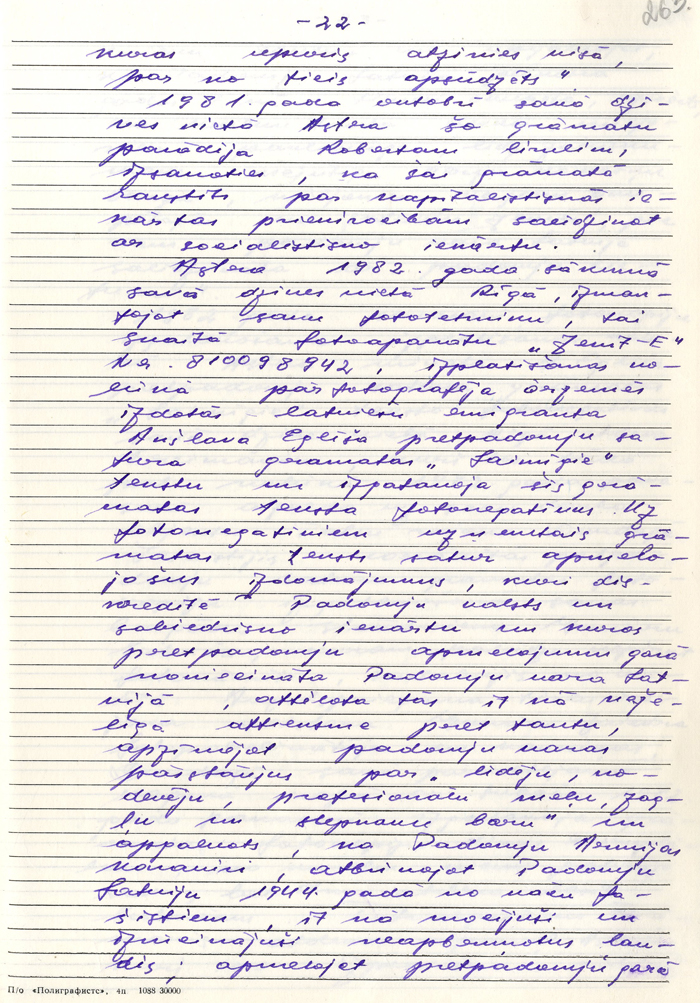 -22-
263.
kuras iepriekš atzinies visā,
par ko ticis apsūdzēts"
1981. gada oktobrī savā dzī-
ves vietā Astra šo grāmatu
parādīja Robertam Sirmlim,
izsakoties, ka šai grāmatā
rakstīts par kapitālistiskās ie-
kārtas priekšrocībām salīdzinot
ar sociālistisko iekārtu.
Astra 1982. gada sākumā
savā dzīves vietā Rīgā, izman-
tojot savu fototehniku, tai
skaitā fotoaparātu „Zenit-E"
Nr. 810098942, izplatīšanas no-
lūkā pārfotografēja ārzemēs
izdotās latviešu emigranta
Anšlava Eglīša pretpadomju sa-
tura grāmatas „Laimīgie"
tekstu un izgatavoja šīs grā-
matas teksta fotonegatīvus. Uz
fotonegatīviem uzņemtais grā-
matas teksts satur apmelo-
jošus izdomājumus, kuri dis-
kreditē Padomju valsts un
sabiedrisko iekārtu un kuros
pretpadomju apmelojumu garā
noniecināta Padomju vara Lat-
vijā, attēlota tās it kā naidī-
gā attieksme pret tautu,
apzīmējot padomju varas
pārstāvjus par „līdēju, no-
devēju, profesionālu meļu, zag-
ļu un slepkavu baru" un
apgalvots, ka Padomju Armijas
karavīri, atbrīvojot Padomju
Latviju 1944. gadā no vācu fa-
šistiem, it kā mocījuši un
iznīcinājuši neapbruņotus ļau-
dis; apmelojot pretpadomju garā
П/о «Полиграфистс», 4п 1088 30000